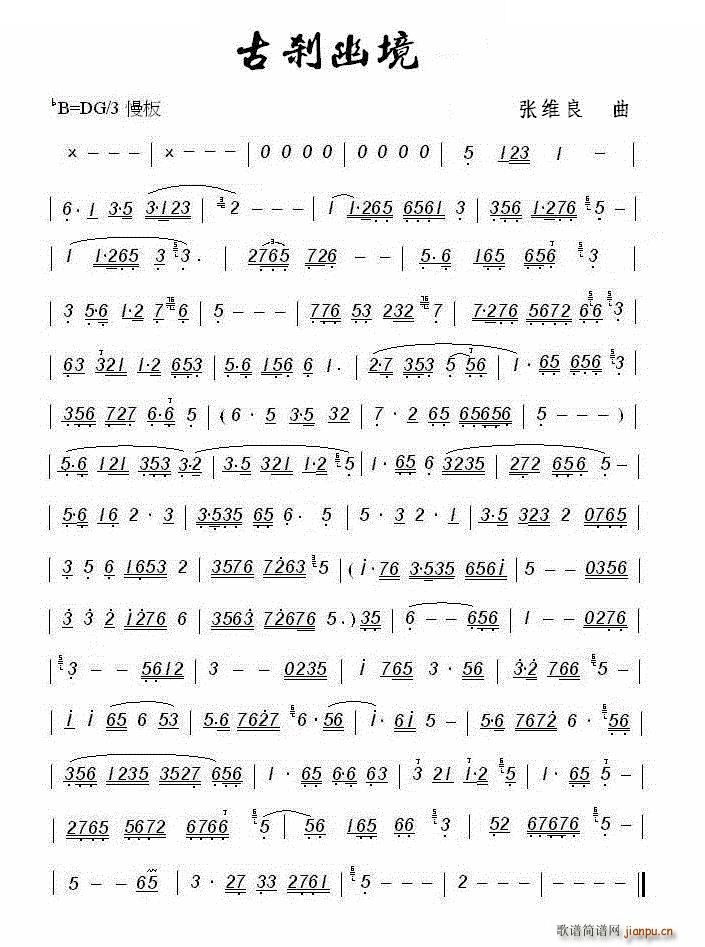 古刹幽境
♭B=DG/3 慢板 张维良 曲
x – – – | x – – – | 0 0 0 0 | 0 0 0 0 | 5 123 1 – |
| 6· 1 3·5 3·123 | 3 2 – – – | 1 1·265 6561 3 | 356 1·276 5 – |
| 1 1·265 3 3· | 2765 726 – – | 5·6 165 656 3 |
| 3 5·6 1·2 7 6 | 5 – – – | 776 53 232 7 | 7·276 5672 66 3 |
| 63 321 1·2 653 | 5·6 156 6 1· | 2·7 353 5 56 | 1·65 656 3 |
| 356 727 6·6 5 | (6· 5 3·5 32 | 7· 2 65 65656 | 5 – – – ) |
| 5·6 121 353 3·2 | 3·5 321 1·2 5 | 1·65 6 3235 | 272 656 5 – |
| 5·6 16 2 · 3 | 3·535 65 6· 5 | 5· 3 2· 1 | 3·5 323 2 0765 |
| 3 5 6 1653 2 | 3576 7263 5 | (1·76 3·535 6561 | 5 – – 0356 |
| 3 3 2 1276 6 | 3563 72676 5·) 35 | 6 – – 656 | 1 – – 0276 |
| 3 – – 5612 | 3 – – 0235 | 1 765 3· 56 | 3·2 766 5 – |
| 1 1 65 6 53 | 5·6 7627 6· 56 | 1· 61 5 – | 5·6 7672 6· 56 |
| 356 1235 3527 656 | 1· 65 6·6 63 | 3 21 1·2 5 | 1· 65 5 – |
| 2765 5672 6766 5 | 56 165 66 3 | 52 67676 5 – |
| 5 – – 65 | 3· 27 33 2761 | 5 – – – | 2 – – – | – – – – ||
歌谱简谱网
jianpu.cn